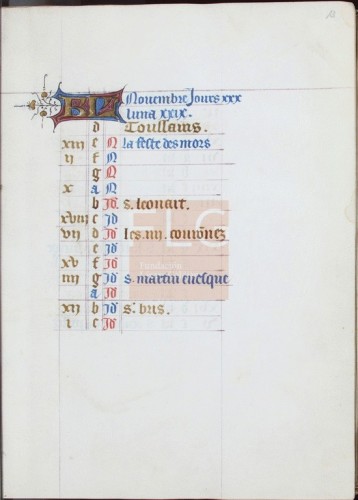 KL Nouembre Jours xxx
luna xxix.
d Toussains.
xiii e N la feste des mors
ii f N
g N
x a N
b Id s. leonart.
xviii c Id
vii d Id les .iiii. couronez
e Id
xv f Id
iiii g Id s. martin euesque
a Id
xii b Id s. bris.
i c Id
FLG